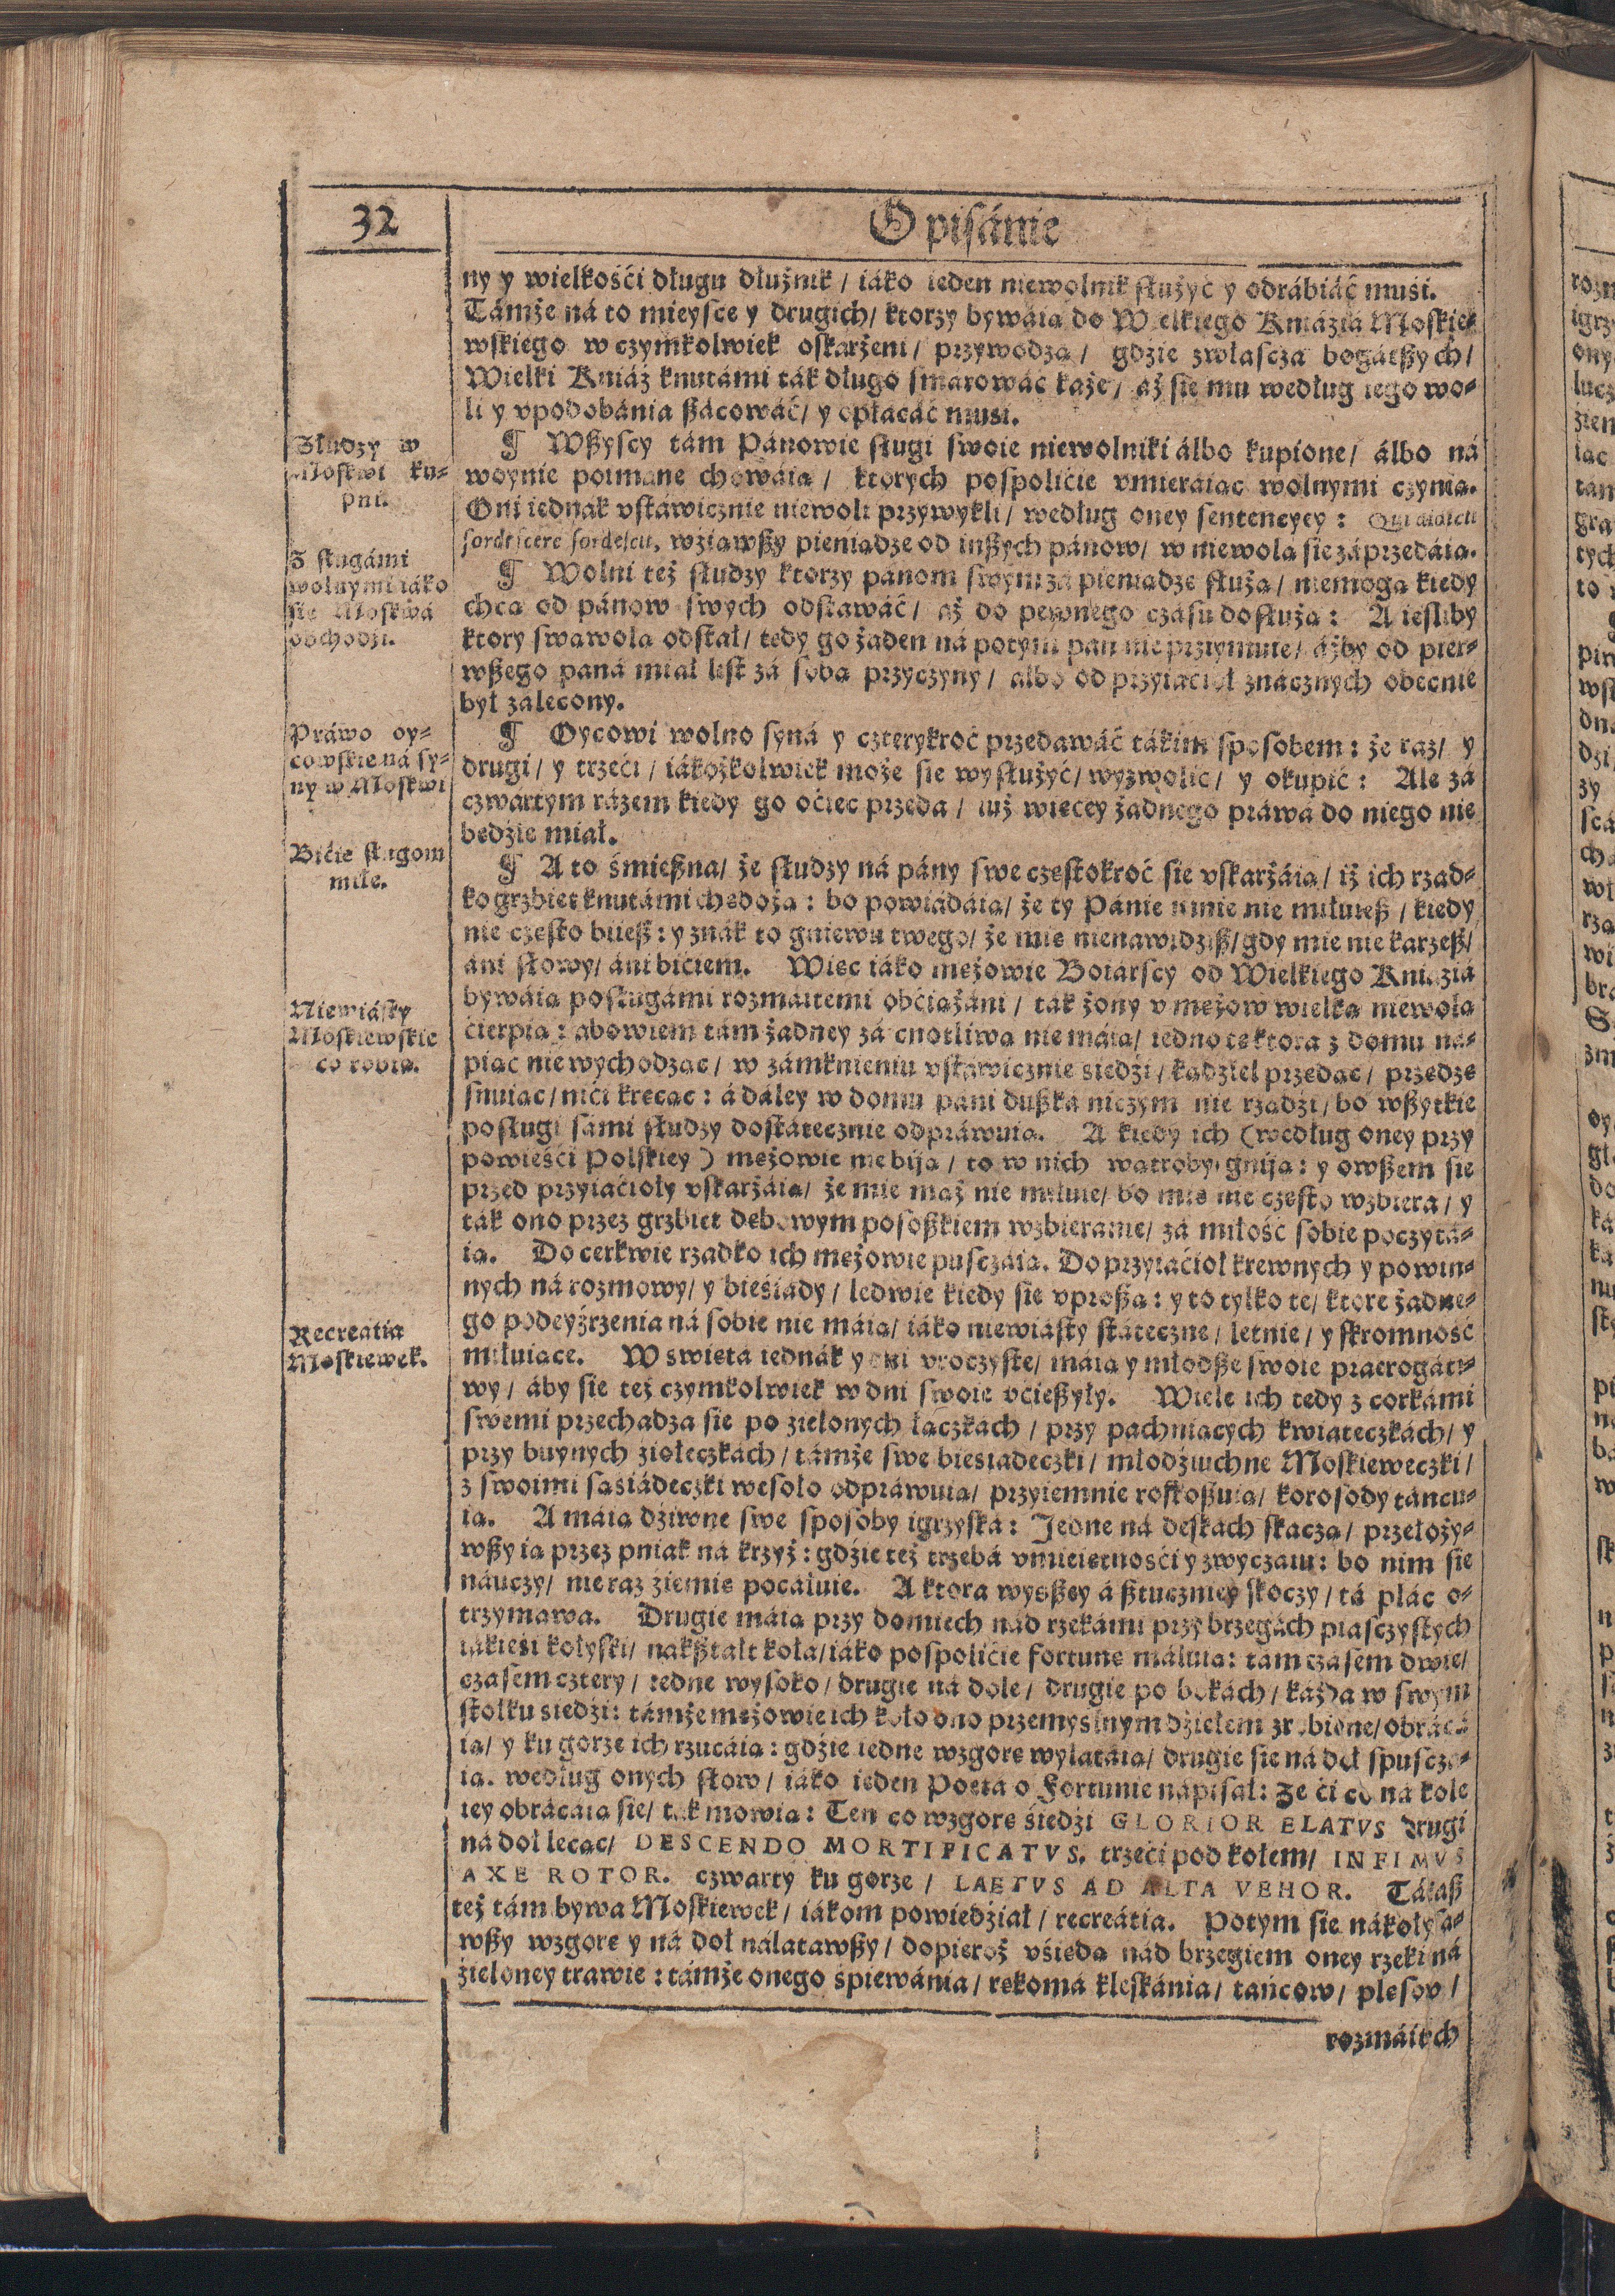 32
Opisánie
ny y wielkośći długu dłużnik / iáko ieden niewolnik służyć y odrábiáć musi.
Támże ná to mieysce y drugich / ktorzy bywáią do Wielkiego Kniáziá Moskie-
wskiego w czymkolwiek oskarżeni / przywodzą / gdzie zwłasczá bogátßych /
Wielki Kniáż knutámi ták długo smárowáć każe / áż sie mu według iego wo-
li y vpodobánia ßácowáć / y opłacáć musi.
Słudzy w
Moskwi ku-
pni.
¶ Wßyscy tám Pánowie sługi swoie niewolniki álbo kupione / álbo ná
woynie poimáne chowáią / ktorych pospolićie vmieráiąc wolnymi czynią.
Oni iednák vstáwicznie niewoli przywykli / według oney sentencyey : Qui didicit
sordescere sordescit, wziąwßy pieniądze od inßych pánow / w niewolą sie záprzedáią.
Z sługámi
wolnymi iáko
sie Moskwá
obchodzi.
¶ Wolni też słudzy ktorzy pánom swym zá pieniądze służą / niemogą kiedy
chcą od pánow swych odstawáć / áż do pewnego czásu dosłużą : A iesliby
ktory swawolą odstał / tedy go żaden ná potym pan nie przyimuie / áżby od pier-
wßego páná miał list zá sobą przyczyny / álbo od przyiaćioł znácznych obecnie
był zálecony.
Práwo oy-
cowskie ná sy-
ny w Moskwi
¶ Oycowi wolno syná y czterykroć przedawáć tákim sposobem : że raz / y
drugi / y trzeći / iákożkolwiek może sie wysłużyć / wyzwolić / y okupić : Ale zá
czwartym rázem kiedy go oćiec przeda / iuż więcey żadnego práwá do niego nie
będzie miał.
Bićie sługom
miłe.
¶ A to śmießna / że słudzy ná pány swe częstokroć sie vskarżáią / iż ich rzad-
ko grzbiet knutámi chędożą : bo powiádáią / że ty Pánie mnie nie miłuieß / kiedy
nie często bijeß : y znák to gniewu twego / że mię nienawidziß / gdy mie nie karzeß /
áni słowy / áni bićiem. Więc iáko mężowie Boiárscy od Wielkiego Kniáziá
Niewiásty
Moskiewskie
co robią.
bywáią posługámi rozmáitemi obćiążáni / ták żony v mężow wielką niewolą
ćierpią : ábowiem tám żadney zá cnotliwą nie máią / iedno tę ktora z domu na-
piąc nie wychodząc / w zámknieniu vstáwicznie siedzi / kądźiel przędąc / przędzę
snuiąc / nići kręcąc : á dáley w domu páni dußká niczym nie rządzi / bo wßytkie
posługi sámi słudzy dostátecznie odpráwuią. A kiedy ich (według oney przy
powieśći Polskiey) mężowie nie biją / to w nich wątroby gniją : y owßem sie
przed przyiaćioły vskarżáią / że mie mąż nie miłuie / bo mię nie często wzbiera / y
ták ono przez grzbiet dębowym posoßkiem wzbieránie / zá miłość sobie poczytá-
ią. Do cerkwie rzadko ich mężowie pusczáią. Do przyiaćioł krewnych y powin-
nych ná rozmowy / y bieśiády / ledwie kiedy sie vproßą : y to tylko te / ktore żadne-
go podeyźrzenia ná sobie nie máią / iáko niewiásty státeczne / letnie / y skromność
Recreatia
Moskiewek.
miłuiące. W święta iednák y dni vroczyste / máią y młodße swoie praerogáti-
wy / áby sie też czymkolwiek w dni swoie vćießyły. Wiele ich tedy z corkámi
swemi przechadza sie po zielonych łączkách / przy pachniących kwiateczkách / y
przy buynych ziołeczkách / támże swe biesiadeczki / młodziuchne Moskieweczki /
z swoimi sąsiádeczki wesoło odpráwuią / przyiemnie roskoßuią / korosody táncu-
ią. A máią dziwne swe sposoby igrzyská : Jedne ná deskách skaczą / przełoży-
wßy ią przez pniak ná krzyż : gdzie też trzebá vmieiętnośći y zwyczáiu : bo nim sie
náuczy / nie raz ziemię pocáłuie. A ktora wyßßey á ßtuczniey skoczy / tá plác o-
trzymawa. Drugie máią przy domiech nád rzekámi przy brzegách piasczystych
iákieśi kołyski / nakßtałt kołá / iáko pospolićie fortunę máluią : tám czásem dwie /
czásem cztery / iedne wysoko / drugie ná dole / drugie po bokách / káżda w swym
stołku siedzi : támże mężowie ich koło ono przemyslnym dziełem zrobione / obráca-
ią / y ku gorze ich rzucáią : gdzie iedne wzgorę wylatáią / drugie sie ná doł spuscza-
ią. według onych słow / iáko ieden Poeta o Fortunie nápisał : Że ći co ná kole
iey obrácáią sie / ták mowią : Ten co wzgorę siedzi GLORIOR ELATVS drugi
ná doł lecąc / DESCENDO MORTIFICATVS, trzeći pod kołem / INFIMVS
AXE ROTOR. czwarty ku gorze / LAETVS AD ALTA VEHOR. Tákaß
też tám bywa Moskiewek / iákom powiedział / recreátia. Potym sie nákołysa-
wßy wzgorę y ná doł nálatawßy / dopieroż vsiędą nád brzegiem oney rzeki ná
zieloney trawie : támże onego śpiewánia / rękomá kleskánia / tańcow / plęsow /
rozmáitych